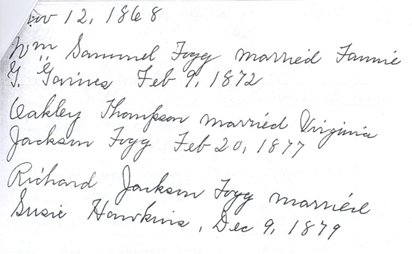 Nov 12, 1868
Wm Samuel Fogg married Fannie
G. Gaines Feb 9, 1872
Oakley Thompson married Virginia
Jackson Fogg Feb 20, 1877
Richard Jackson Fogg married
Susie Hawkins, Dec 9, 1879